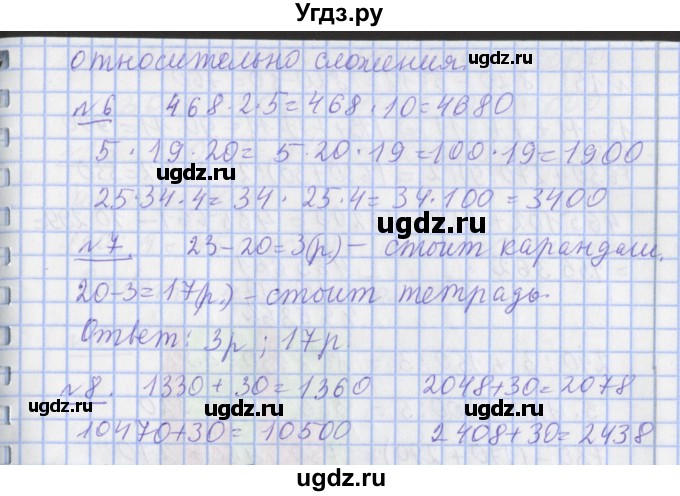 Угдз.ру
относительно сложения.
ugdz.ru
№6 468·2·5=468·10=4680
5·19·20=5·20·19=100·19=1900
ugdz.ru
25·34·4=34·25·4=34·100=3400
ugdz.ru
№7. 23-20=3(р.) – стоит карандаш.
20-3=17(р.) – стоит тетрадь.
ugdz.ru
ugdz.ru
Ответ: 3р ; 17р.
ugdz.ru
№8. 1330+30=1360 2048+30=2078
ugdz.ru
ugdz.ru
ugdz.ru
10470+30=10500 2408+30=2438
ugdz.ru